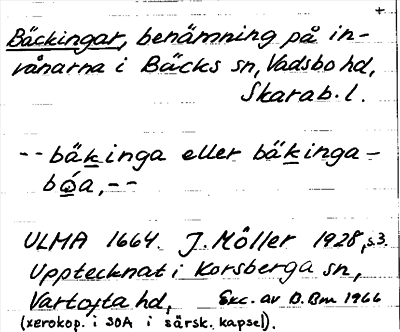 +
Bäckingar, benämning på in-
vånarna i Bäcks sn, Vadsbo hd,
Skarab. l.
-- bäkinga eller bäkinga-
bóa, --
ULMA 1664. J. Möller 1928, s. 3.
Upptecknat i Korsberga sn,
Vartofta hd, Exc. av D. Bm 1966
(xerokop. i SOA i särsk. kapsel).